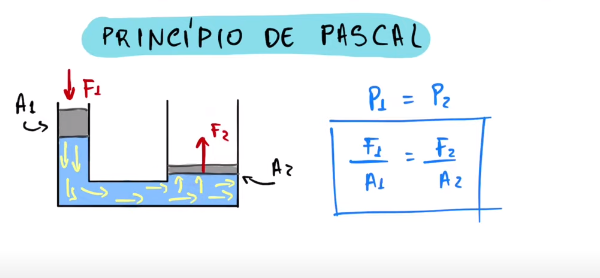 PRINCÍPIO DE PASCAL
F1
A1
F2
A2
P1 = P2
F1/A1 = F2/A2